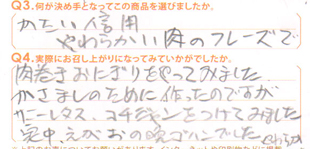 Q3.何が決め手となってこの商品を選びましたか。
かたい信用
やわらかい肉のフレーズで
Q4.実際にお召し上がりになってみていかがでしたか。
肉巻きおにぎりをやってみました
かさましのために作ったのですが
サニーレタス、コチジャンをつけてみました
家中、えがおの晩ゴハンでした